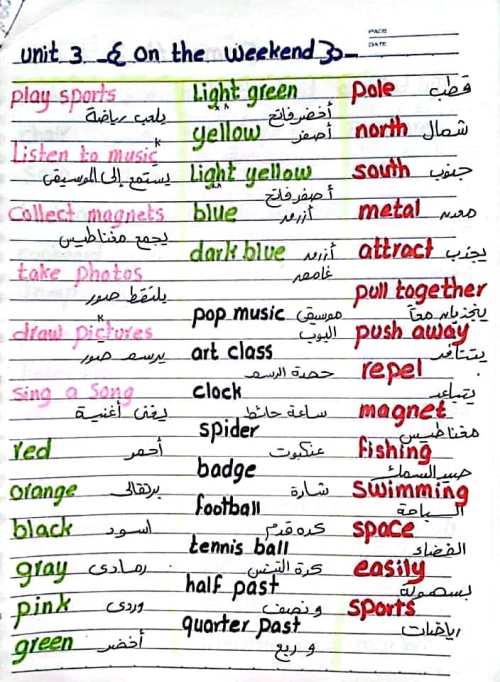 PAGE
DATE
Unit 3 On the Weekend
play sports
يلعب رياضة
Listen to music
يستمع إلى الموسيقى
Collect magnets
يجمع مغناطيس
take photos
يلتقط صور
draw pictures
يرسم صور
sing a song
يغنى أغنية
red أحمر
orange برتقالى
black اسود
gray رمادى
pink وردى
green أخضر
Light green
أخضر فاتح
yellow أصفر
Light yellow
أصفر فاتح
blue أزرق
dark blue أزرق
غامق
pop music موسيقى
البوب
art class
حصة الرسم
clock
ساعة حائط
spider
عنكبوت
badge
شارة
football
كرة قدم
tennis ball
كرة التنس
half past
ونصف
quarter past
وربع
pole قطب
north شمال
south جنوب
metal معدن
attract يجذب
pull together
يتجذبان معاً
push away
يتنافر
repel
يتباعد
magnet
مغناطيس
fishing
صيد السمك
swimming
السباحة
space
الفضاء
easily
بسهولة
sports
رياضات